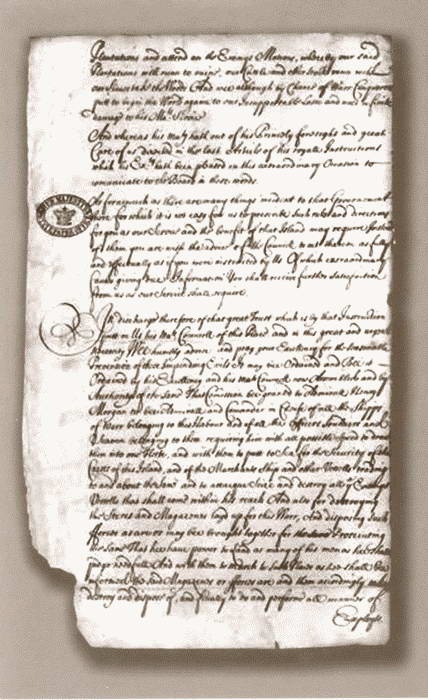 Plantations and attend on the Enemys Motions, whereby our said
Plantations will runn to ruine, our Cattle and other
our the Woods And wee although by Chance of Warr Conquerors
putt to begin the World againe to our Insupportable Loss and
damage to his Ma.ties Service
And whereas his Ma.tie hath out of his Princely foresight and great
Care of us in the last Article of his royall Instructions
which his Ex.cy hath been pleased on this extraordinary Occasion to
comunicate to this Board in these words
As forasmuch as there are many things incident to that Government
there for which it is not easy for us to prescribe such rules and directions
for you as our Service and the benefit of that Island may require
of them you are with the advice of the Councill to act therein as fully
and effectually as if you were instructed by Us Of which extraordinary
Cases giving due Information You shall receive further satisfaction
from us as our Service shall require
In discharge therefore of that great Trust which is by that Instruction
putt on Us his Ma.ties Councill of this Place and in this great and urgent
Necessity We humbly advise and pray your Excellency for the
Prevention of these Impending Evils It may bee Ordained and Bee it
Ordained by his Excellency and his Ma.ties Councill now Assembled and by
Authority of the same That Comission bee granted to Admirall Henry
Morgan to bee Admirall and Comander in Cheife of all the Shipps
of Warr belonging to this Harbour And of all the Officers Souldiers and
Seamen belonging to them requiring him with all possible Speed to draw
them into one Fleete, and with them to putt to Sea for the Security of the
Coast of this Island, and of the Merchant Ships and other Vessells trading
to and about the same and to attacque seize and destroy all y.e Enemyes
Vessells that shall come within his reach And also for destroying
the Stores and Magazenes layd up for this Warr, And dispersing such
fforces as are or may bee brought together for the Prosecuting
the same That hee have power to land as many of his men as hee shall
judge needfull And with them to march to such Places as hee shall bee
informed the said Magazenes or fforces are and them accordingly
destroy and disperse, and finally to do and performe all manner of
Exployts